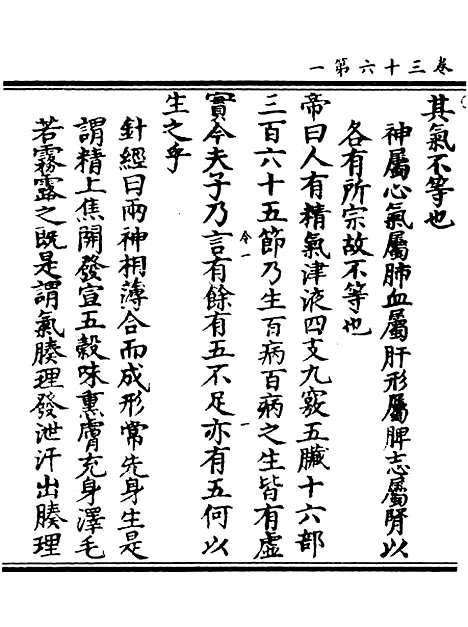 卷三十六第一
其氣不等也
神屬心氣屬肺血屬肝形屬脾志屬腎以
各有所宗故不等也
帝曰人有精氣津液四支九竅五臟十六部
三百六十五節乃生百病百病之生皆有虛
實今夫子乃言有餘有五不足亦有五何以
生之乎
針經曰兩神相薄合而成形常先身生是
謂精上焦開發宣五穀味熏膚充身澤毛
若霧露之既是謂氣腠理發泄汗出腠理